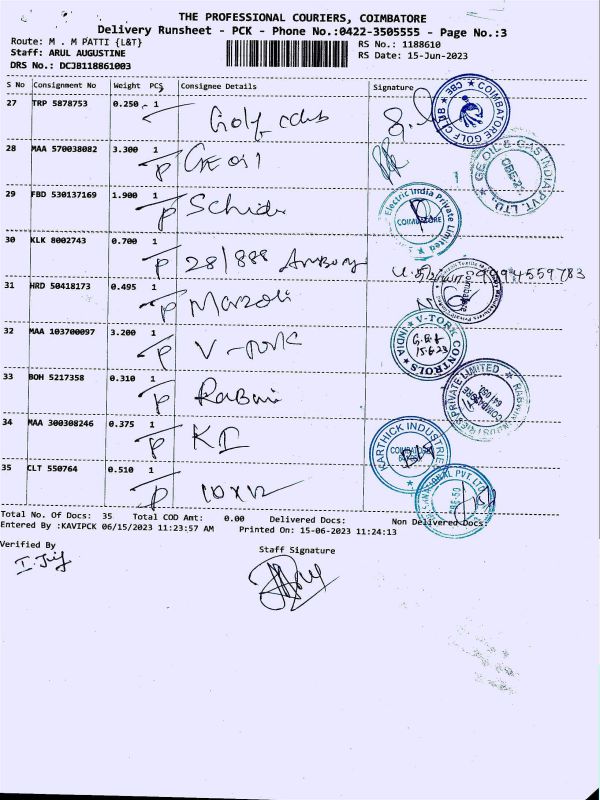 THE PROFESSIONAL COURIERS, COIMBATORE
Delivery Runsheet - PCK - Phone No.:0422-3505555 - Page No.:3
Route: M . M PATTI {L&T} RS No.: 1188610
Staff: ARUL AUGUSTINE RS Date: 15-Jun-2023
DRS No.: DCJB118861003
S No Consignment No Weight PCS Consignee Details Signature
27 TRP 5878753 0.250 1 Golf club
COIMBATORE GOLF CLUB CBE
28 MAA 570038082 3.300 1 P GE Oil
GE OIL & GAS INDIA PVT. LTD. CBE-21
29 FBD 530137169 1.900 1 P
Electric India Private Limited COIMBATORE
30 KLK 8002743 0.700 1 P 28/888 9994559783
31 HRD 50418173 0.495 1 P Marzoli
Coimbatore
32 MAA 103700097 3.200 1 P V-TORK
V-TORK CONTROLS INDIA 15.6.23
33 BOH 5217358 0.310 1 P Rabwi
PRIVATE LIMITED COIMBATORE 641 050
34 MAA 300308246 0.375 1 P KI
KARTHICK INDUSTRIES COIMBATORE
35 CLT 550764 0.510 1 P
PVT. LTD.
Total No. Of Docs: 35 Total COD Amt: 0.00 Delivered Docs: Non Delivered Docs:
Entered By :KAVIPCK 06/15/2023 11:23:57 AM Printed On: 15-06-2023 11:24:13
Verified By
Staff Signature